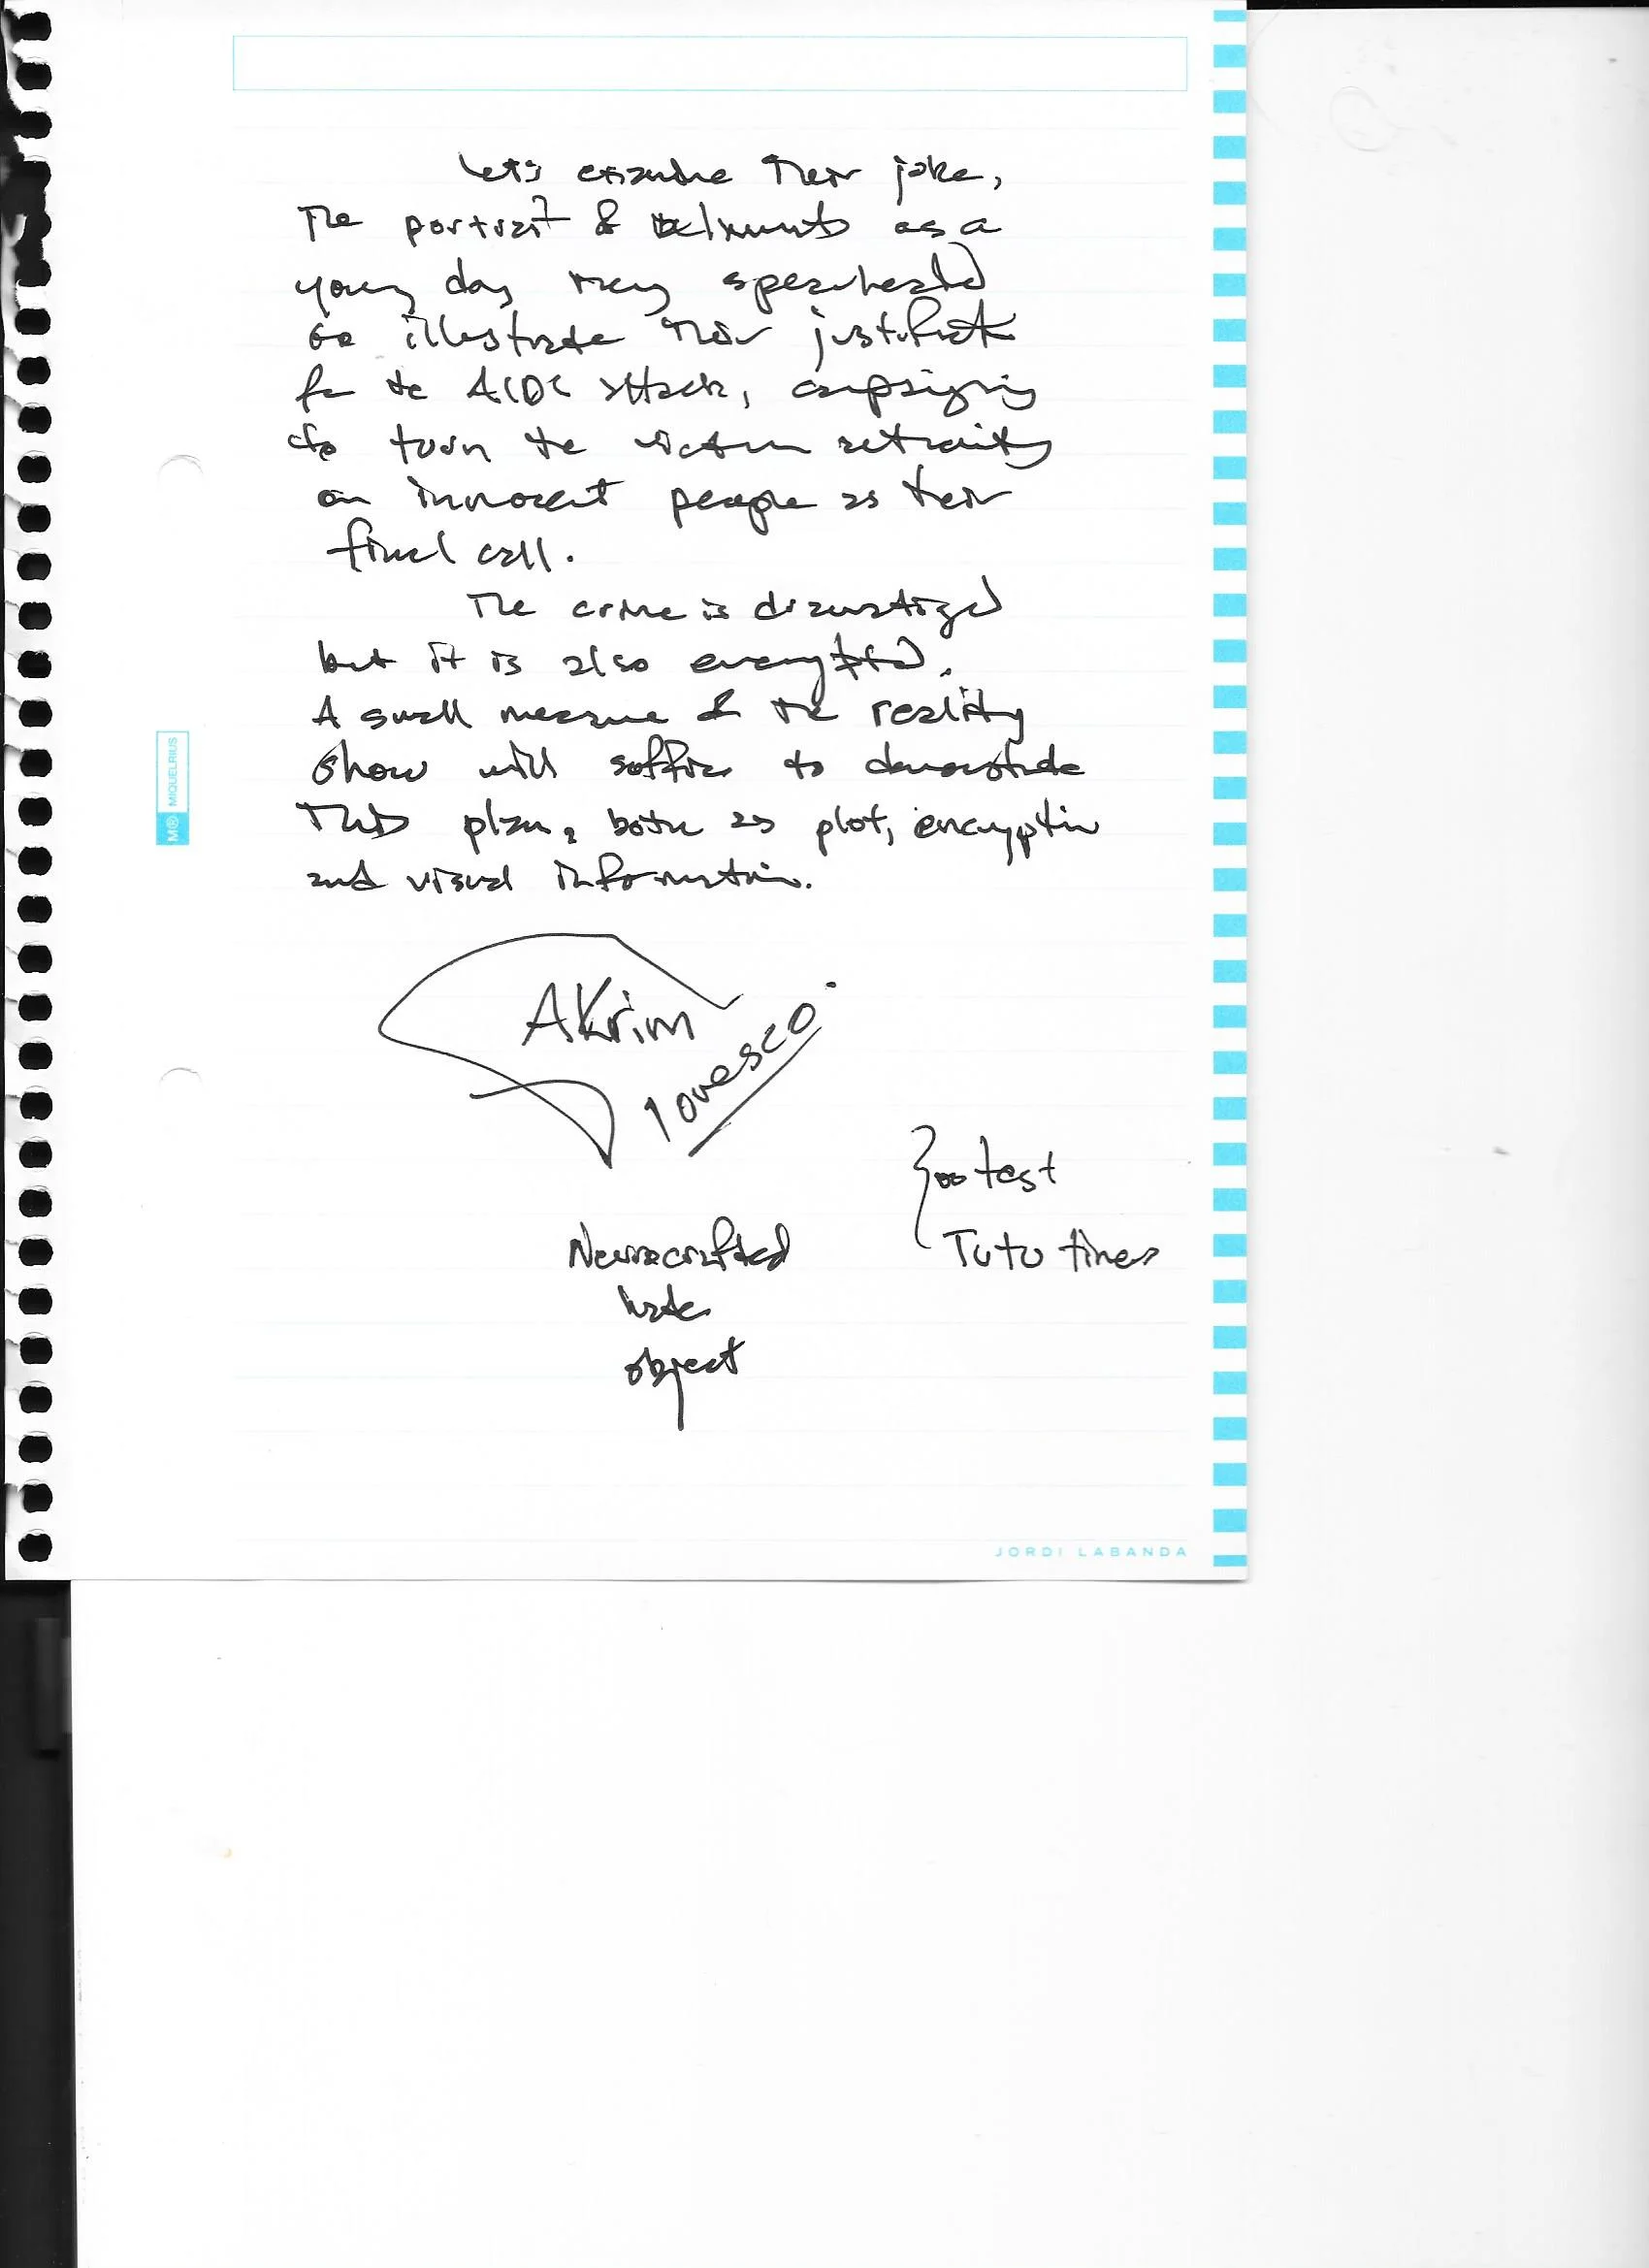 Let's examine their joke,
The portrait of as a
young dog they spearheaded
to illustrate their
for the AIDS attack, campaigning
to turn the victim
on innocent people as their
final call.
The crime is dramatized
but it is also encrypted.
A small measure of the reality
show will suffice to demonstrate
this plan, both as plot, encryption
and visual information.
AKrim
Ionesco.
Zoo test
Tutu times
Neurocrafted
hate
object
M® MIQUELRIUS
JORDI LABANDA